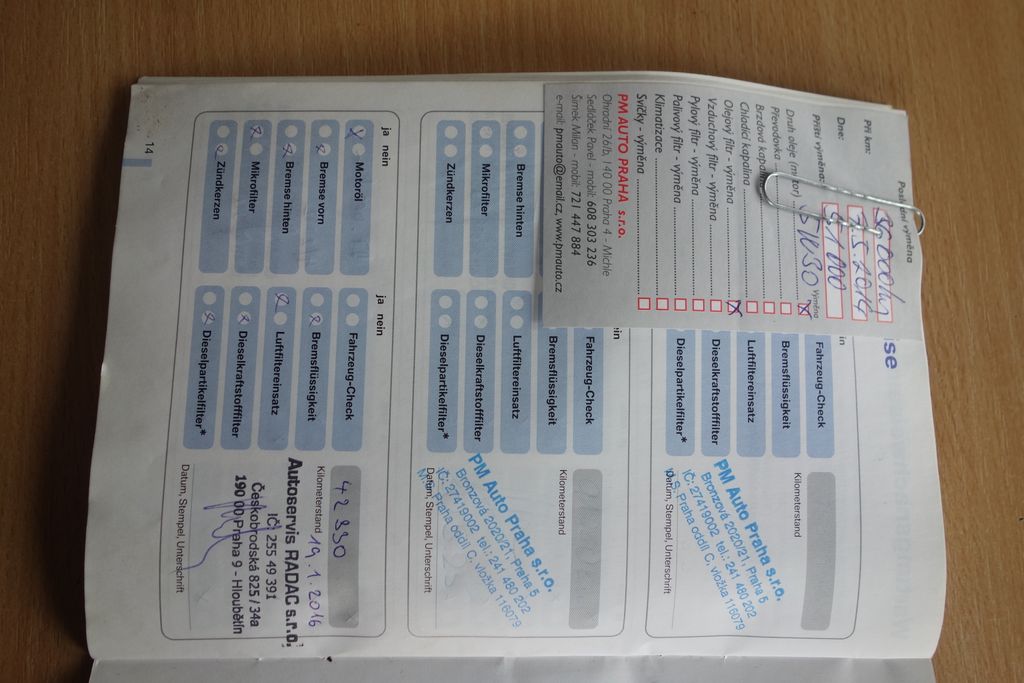 se
Poslední výměna
Při km: 36000 km
Dne: 7.5.2014
Příští výměna: 51000
Druh oleje (motor) 5W30 Výměna
Převodovka
Brzdová kapalina
Chladící kapalina
Olejový filtr - výměna
Vzduchový filtr - výměna
Pylový filtr - výměna
Palivový filtr - výměna
Klimatizace
Svíčky - výměna
PM AUTO PRAHA s.r.o.
Ohradní 26/b, 140 00 Praha 4 - Michle
Sedláček Pavel - mobil: 608 303 236
Šimek Milan - mobil: 721 447 884
e-mail: pmauto@email.cz, www.pmauto.cz
in
Fahrzeug-Check
Bremsflüssigkeit
Luftfiltereinsatz
Dieselkraftstofffilter
Dieselpartikelfilter*
Kilometerstand
PM Auto Praha s.r.o.
Bronzová 2020/21, Praha 5
IČ: 27419002 tel.: 241 480 202
M.S. Praha oddíl C, vložka 116079
Datum, Stempel, Unterschrift
ein
Bremse hinten
Mikrofilter
Zündkerzen
Fahrzeug-Check
Bremsflüssigkeit
Luftfiltereinsatz
Dieselkraftstofffilter
Dieselpartikelfilter*
Kilometerstand
PM Auto Praha s.r.o.
Bronzová 2020/21, Praha 5
IČ: 27419002 tel.: 241 480 202
M.S. Praha oddíl C, vložka 116079
Datum, Stempel, Unterschrift
ja nein
Motoröl
Bremse vorn
Bremse hinten
Mikrofilter
Zündkerzen
ja nein
Fahrzeug-Check
Bremsflüssigkeit
Luftfiltereinsatz
Dieselkraftstofffilter
Dieselpartikelfilter*
42930
Kilometerstand
19.1.2016
Autoservis RADAC s.r.o.
IČ: 255 49 391
Českobrodská 825/34a
190 00 Praha 9 - Hloubětín
Datum, Stempel, Unterschrift
14